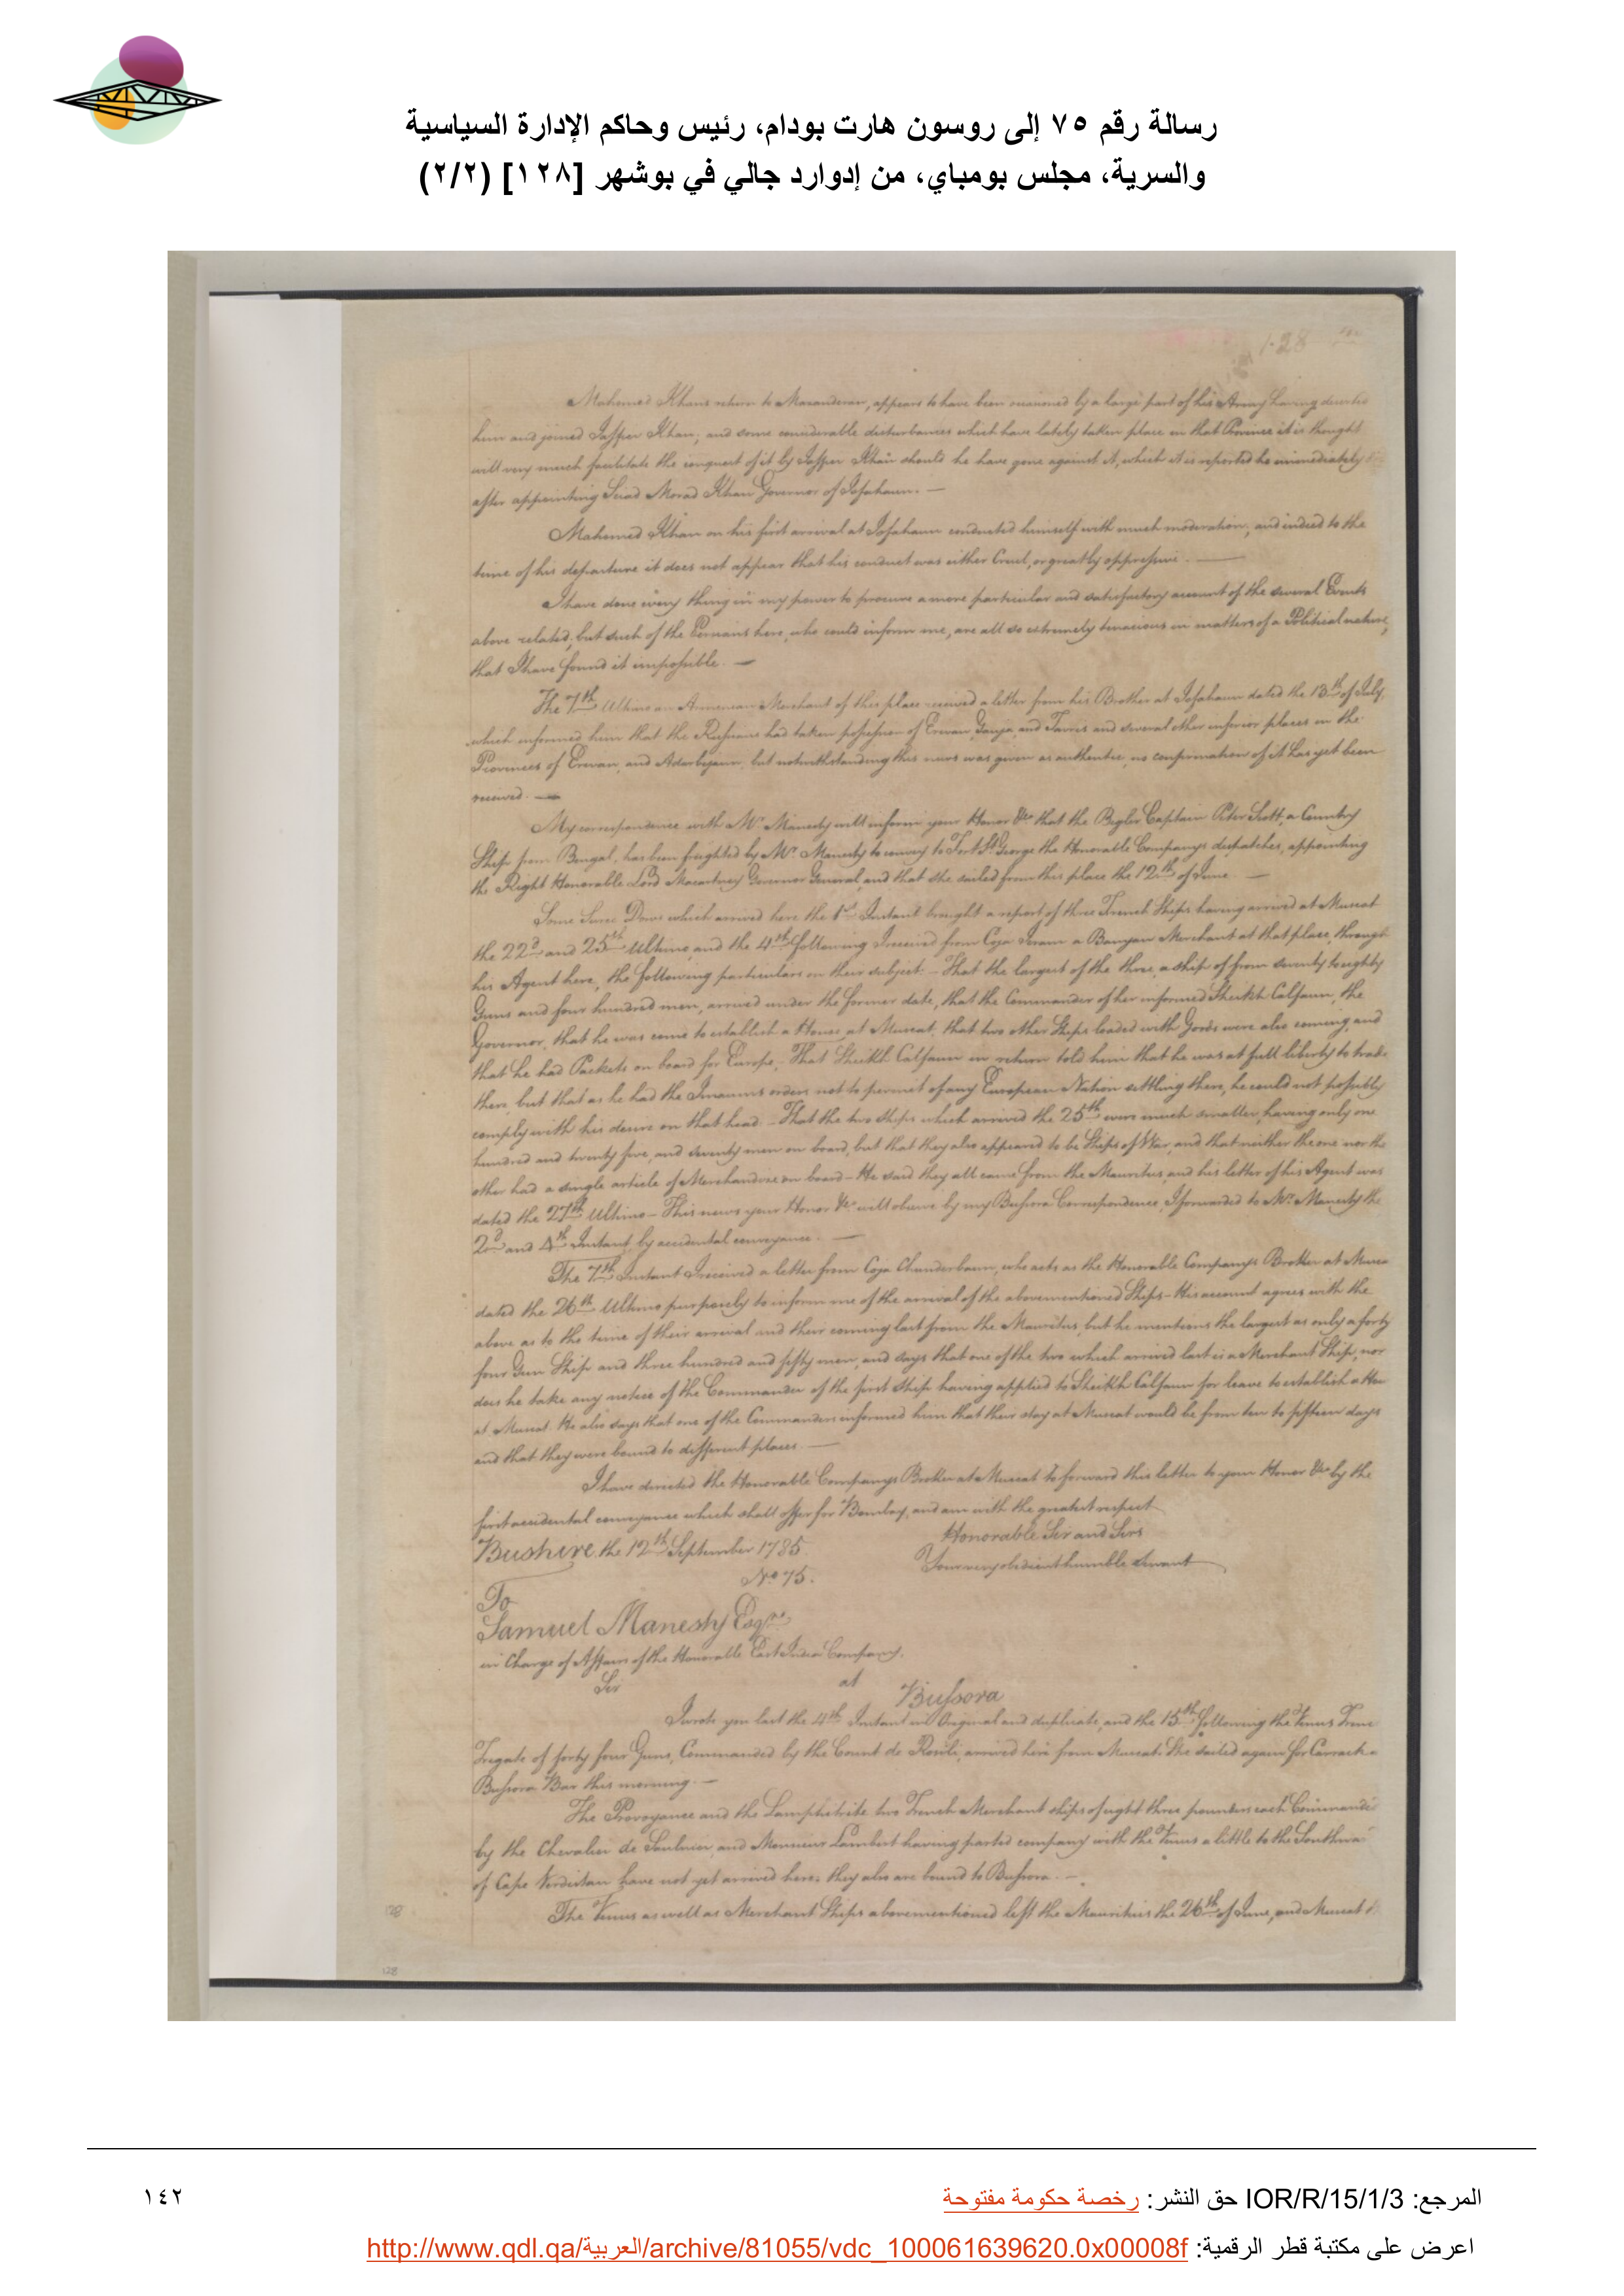 رسالة رقم ٧٥ إلى روسون هارت بودام، رئيس وحاكم الإدارة السياسية
والسرية، مجلس بومباي، من إدوارد جالي في بوشهر [١٢٨] (٢/٢)
128
Mahomed Khans return to Mazanderan, appears to have been occasioned by a large part of his Army having deserted
him and joined Jaffier Khan; and some considerable disturbances which have lately taken place in that Province it is thought
will very much facilitate the conquest of it by Jaffier Khan should he have gone against it, which it is reported he immediately
after appointing Seid Morad Khan Governor of Isfahaun. —
Mahomed Khan on his first arrival at Isfahaun conducted himself with much moderation, and indeed to the
time of his departure it does not appear that his conduct was either Cruel, or greatly oppressive. —
I have done every thing in my power to procure a more particular and satisfactory account of the several Events
above related, but such of the Persians here, who could inform me, are all so extremely tenacious in matters of a Political nature,
that I have found it impossible. —
The 7th Ultimo an Armenian Merchant of this place received a letter from his Brother at Isfahaun dated the 13th of July,
which informed him that the Russians had taken possession of Erevan, Ganja, and Tavris and several other inferior places in the
Provinces of Erevan, and Aderbejaun, but notwithstanding this news was given as authentic, no confirmation of it has yet been
received. —
My correspondence with Mr. Manesty will inform your Honor &ca that the Captain Peter Scott, a Country
Ship from Bengal, has been freighted by Mr. Manesty to convey to Fort St. George the Honorable Companys dispatches, appointing
the Right Honorable Lord Macartney Governor General, and that she sailed from this place the 12th of June —
Some Dows which arrived here the 1st Instant brought a report of three French Ships having arrived at Muscat
the 22d and 25th Ultimo, and the 4th following I received from Coja a Banyan Merchant at that place, through
his Agent here, the following particulars on their subject. — That the largest of the three, a ship of from seventy to eighty
Guns and four hundred men, arrived under the former date, that the Commander of her informed Sheikh Calfaun, the
Governor, that he was come to establish a House at Muscat, that two other Ships loaded with Goods were also coming, and
that he had Packets on board for Europe, — That Sheikh Calfaun in return told him that he was at full liberty to trade
there, but that as he had the Imaums orders not to permit of any European Nation settling there, he could not possibly
comply with his desire on that head. — That the two ships which arrived the 25th were much smaller, having only one
hundred and twenty five, and seventy men on board, but that they also appeared to be Ships of War, and that neither the one nor the
other had a single article of Merchandize on board — He said they all came from the Mauritus, and his letter of his Agent was
dated the 27th Ultimo — This news your Honor &ca will observe by my Bussora Correspondence, I forwarded to Mr. Manesty the
2d and 4th Instant, by accidental conveyance. —
The 7th Instant I received a letter from Coja Chunderbaun, who acts as the Honorable Companys Broker at
dated the 26th Ultimo purposely to inform me of the arrival of the abovementioned Ships — His account agrees with the
above as to the time of their arrival and their coming last from the Mauritus, but he mentions the largest as only a forty
four Gun Ship and three hundred and fifty men, and says that one of the two which arrived last is a Merchant Ship, nor
does he take any notice of the Commander of the first Ship having applied to Sheikh Calfaun for leave to establish a
at Muscat. He also says that one of the Commanders informed him that their stay at Muscat would be from ten to fifteen days
and that they were bound to different places. —
I have directed the Honorable Companys Broker at Muscat to forward this letter to your Honor &ca by the
first accidental conveyance which shall offer for Bombay, and am with the greatest respect
Honorable Sir and Sirs
Bushire the 12th September 1785
Your very obedient humble Servant
No 75.
To
Samuel Manesty Esqr.
in Charge of Affairs of the Honorable East India Company.
at
Sir
Bussora
I wrote you last the 4th Instant in Original and duplicate, and the 15th following the Venus
Frigate of forty four Guns, Commanded by the Count de Rosili, arrived here from Muscat. She sailed again for Carrack
Bussora Bar this morning. —
The Provoyance and the Lamphitrite two French Merchant ships of eight three pounders each
by the Chevalier de Saulnier, and Monsieur Lambert having parted company with the Venus a little to the
of Cape Verdistan have not yet arrived here; they also are bound to Bussora. —
The Venus as well as Merchant Ships abovementioned left the Mauritius the 26th of June, and Muscat
128
128
المرجع: IOR/R/15/1/3 حق النشر: رخصة حكومة مفتوحة
١٤٢
اعرض على مكتبة قطر الرقمية: http://www.qdl.qa/العربية/archive/81055/vdc_100061639620.0x00008f